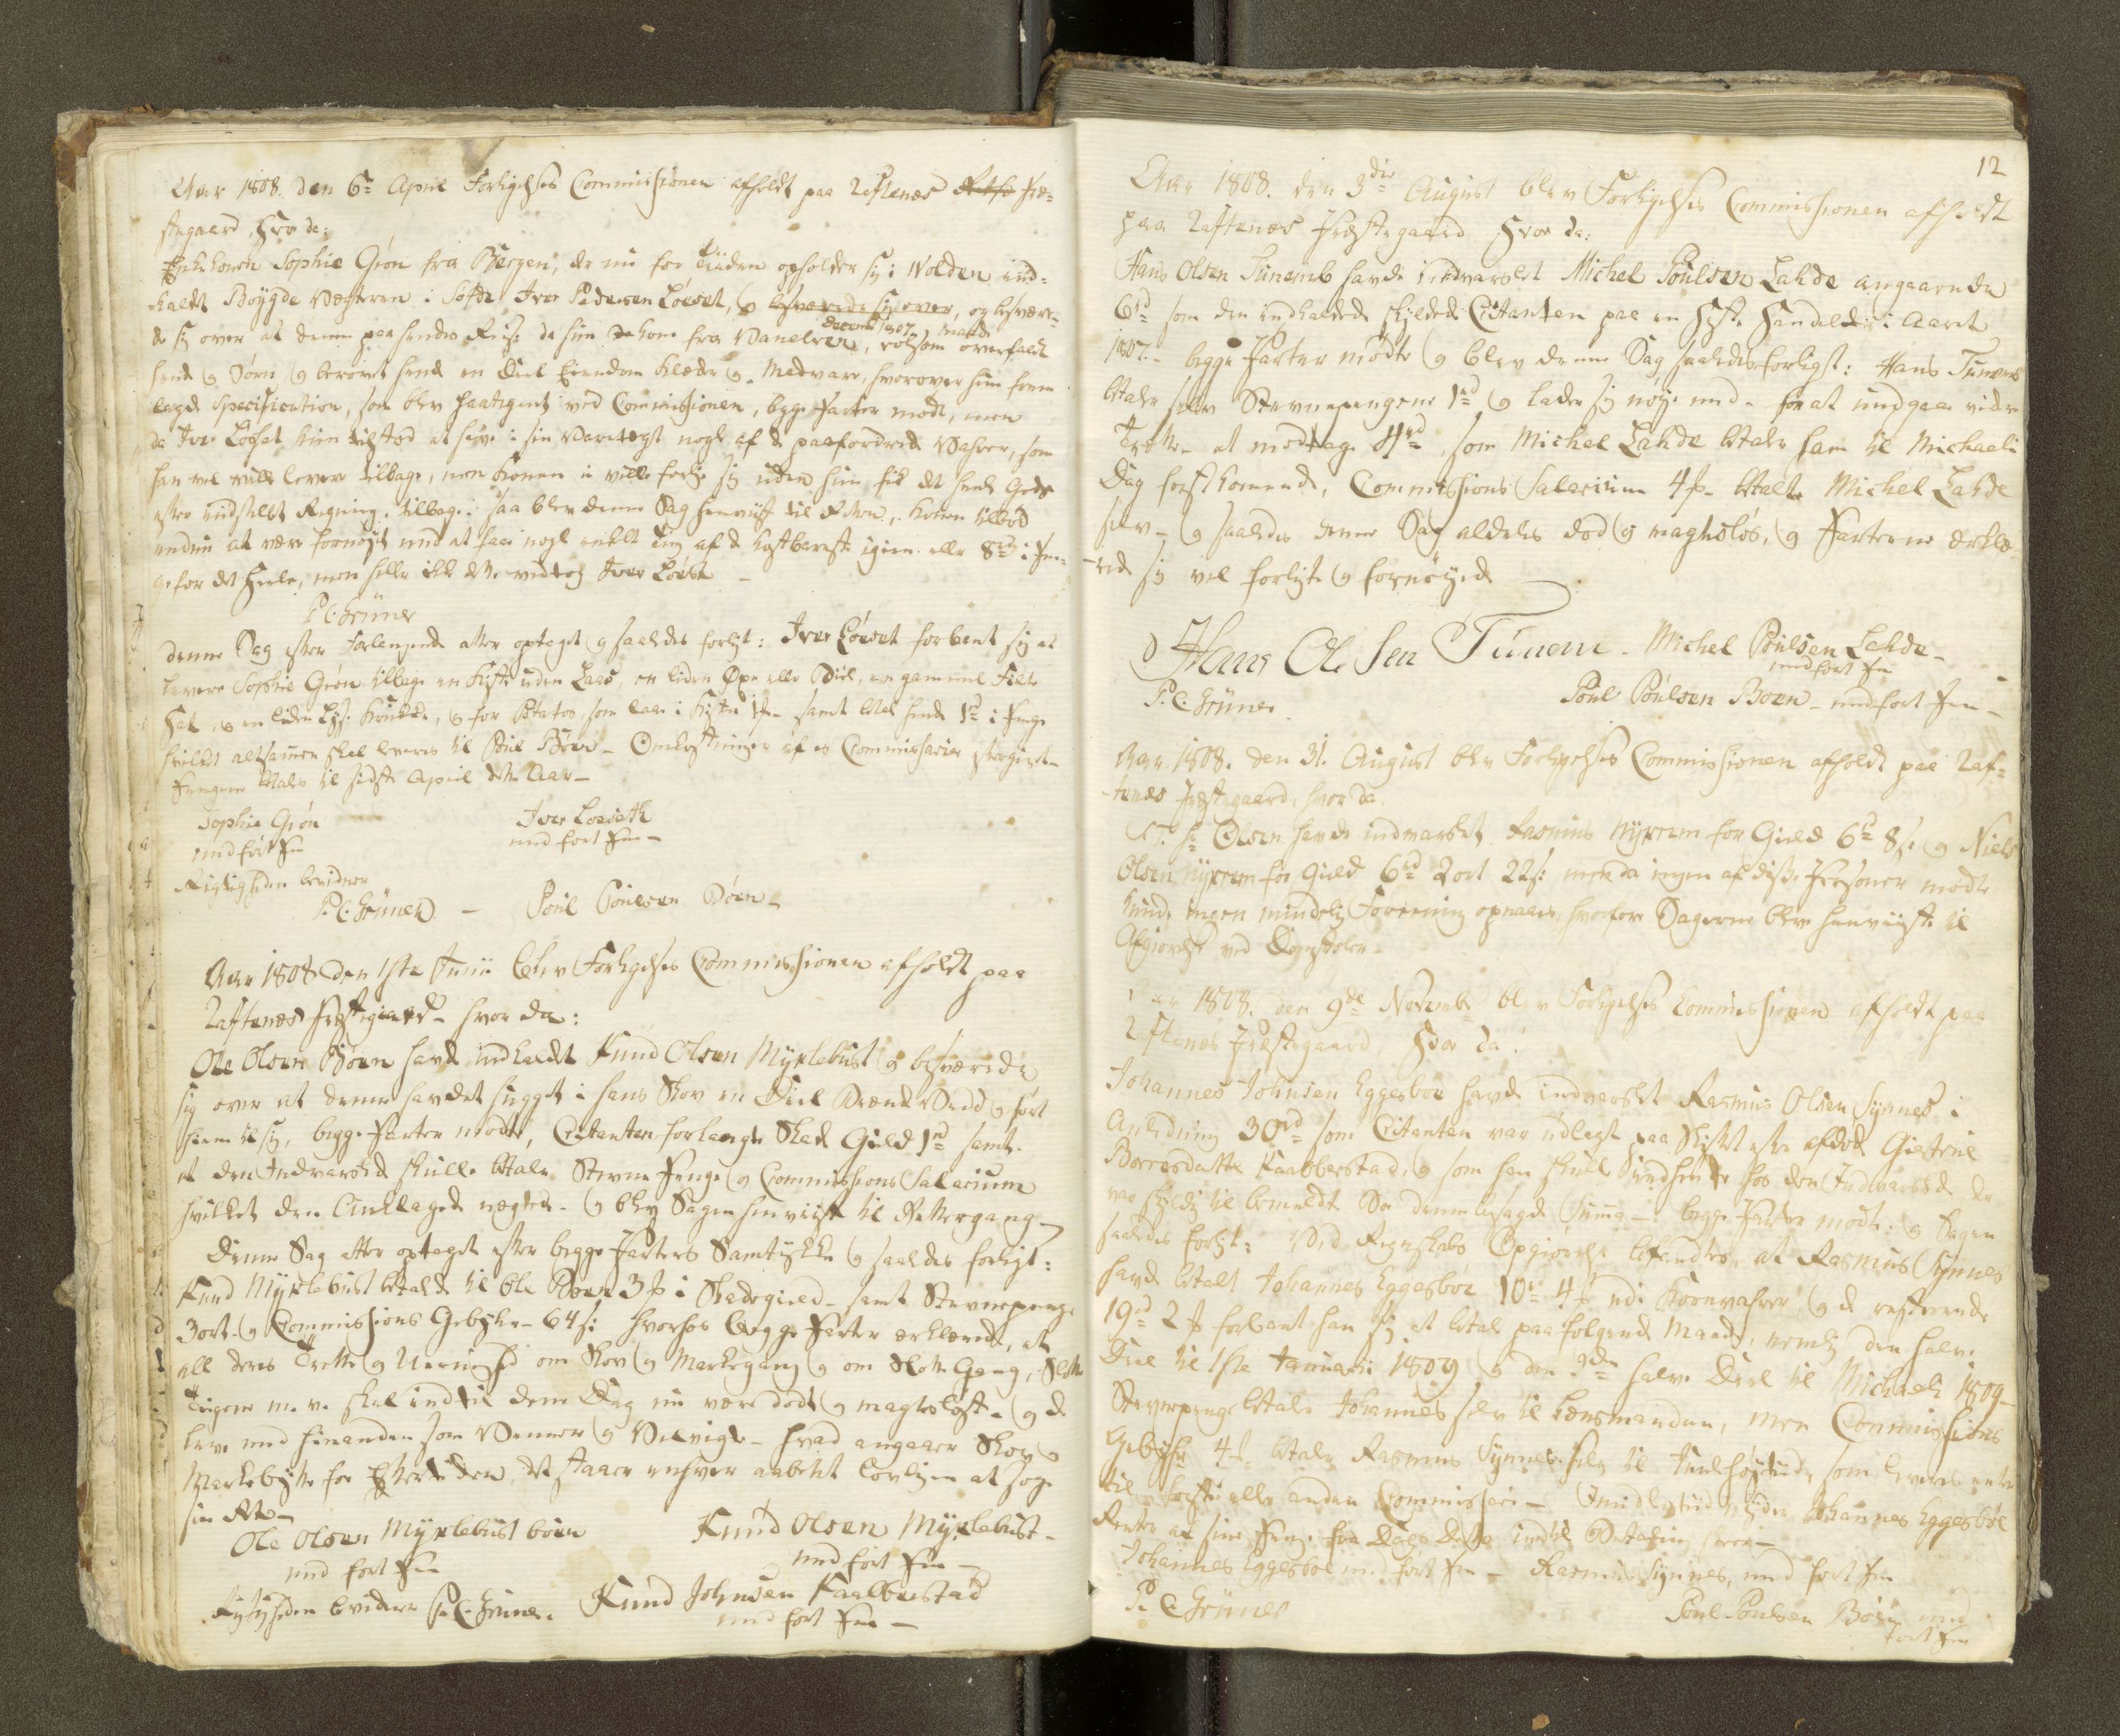 Aar 1808. den 6te April Forligelses Commissionen afholdt paa Raftenæs Præ=
stegaard, Hvor da:
Enkekonen Sophie Grøn fra Bergen, der nu for Tiiden opholder sig i Wolden ind=
kaldt Bøygde Vægteren i Søfde Iver Pedersen Løeset, og besværede sig over, og besvære=
de sig over at denne paa hendes Reise da hun kom fra Vanelven, decemb 1807, voldsom maade overfaldt
hende og Børn og berøvet hende en Deel Eiendom Klæder og Madvare, hvorover hun frem
lagde Specification, som blev paategnet ved Commissionen, begge Parter mødte, men
da Iver Løset kun tilstod at have i sin Varetægt nogle af de paafordrede Vahrer, som
han vel vilde levere tilbage, men Konen ei vilde forlige sig uden hun fik det heele Gods
efter indstillet Regning tilbage: saa blev denne Sag henviist til Retten, Konen tilbød
endnu at være fornøyet med at faae nogle enkelt Ting af de kostbareste igien eller 8rd i Pen=
ge for det Heele, men heller ikke dette vedtog Iver Løeset —
P. C. Grüner
denne Sag efter Forlangende atter optaget og saaledes forligt: Iver Løeset forbant sig at
levere Sophie Grøn tilbage en Kiste uden Laas, en liden Øxe eller Biil, en gammel Filt
Hat, og en liden Krukke, og for Potatos, som laae i Kisten samt betale hende 1rd i Penge
hvilket altsammen skal leveres til Poul Bøen — Omkostninger af os Commissarier eftergivet —
Pengene betales til sidste April dette Aar —
Sophie Grøn Iver Loeseth
med ført Pen med ført Pen —
Rigtigheden bevidner
P. C. Grüner — Poul Poulsen Bøen —
Aar 1808 den 1ste Junii blev Forligelses Commissionen afholdt paa
Raftenæs Præstegaard — hvor da:
Ole Olsen Bøen havde indkaldt Knud Olsen Myklebust og besværede
sig over at denne havdet hugget i hans Skov en Deel Brænde Vedd og ført
hiem til sig, begge Parter mødte, Citanten forlangte Skade Giæld 1rd samt
at den Indvarslede skulle betale Stevne Penge og Commissions Salarium
hvilket den Anklagede negtede — og blev Sagen henviist til Rettergang —
Denne Sag atter optaget efter begge Parters Samtykke og saaledes forligt:
Knud Myklebust betalde til Ole Bøen 3 i Skadegield — samt Stevnepenge
3ort — og Commissions Gebyhr — 64 s: hvorhos begge Parter erklærede, at
all deres Trette og Uenighed om Skov og Markegang og om Slotte Gang, Slotte
Teigene m. v. skal indtil denne Dag nu være død og magtesløs — og de
leve med hinanden som Venner og Velvige — hvad angaaer Skov og
Markebytte for Eftertiden, det staaer enhver aabent lovligen at søge
sin Ret —
Ole Olsen Myklebust bøen Knud Olsen Myklebust —
med ført Pen med ført Pen —
Rigtigheden bevidner P. C. Grüner. Knud Johnsen Kaalbrestad
med ført Pen —
12
Aar 1808. den 3die August blev Forligelses Commissionen afholdt
paa Raftenæs Præstegaard Hvor da:
Hans Olsen Tunemb havde indvarslet Michel Poulsen Lahde angaaende
6rd som den indkaldede skyldede Citanten paa en Heste Handel i Aaret
1807. — begge Parter mødte og blev denne Sag saaledes forligt: Hans Tunemb
betaler selv Stevnepengene 1rd og lader sig nøye med — for at undgaae videre
Trætte — at modtage 4rd som Michel Lahde betaler ham til Michaeli
Dag førstkomende, Commissions Salarium 4 — betalte Michel Lahde
selv — og saaledes denne Sag aldeles død og magtesløs, og Parterne erklæ
rede sig vel forligte og fornøyede
Hans Ole Sen Tunem — Michel Poulsen Lahde —
med ført Pen
P. C. Grüner. Poul Poulsen Boen — med ført Pen —
Aar 1808. den 31. August blev Forligelses Commissionen afholdt paa Raf=
tenæs Præstegaard, hvor da
Hr Olsen havde indvarslet Rasmus Nykrem for Giæld 6rd 8 s. og Niels
Olsen Nykrem for Giæld 6rd 2 ort 22 s: men da ingen af disse Personer mødte
kunde ingen mindelig Forening opnaaes, hvorfore Sagerne blev henviiste til
Afgiørelse ved Domstolen —
Aar 1808. den 9de Novembr blev Forligelses Commissionen afholdt paa
Raftenæs Præstegaard Hvor da:
Johannes Johnsen Eggesbøe havde indvarslet Rasmus Olsen Synnes i
Anledning 30rd som Citanten var udlagt paa Skiftet efter afdøde Giertrue
Borresdatter Kaalberstad, og som han skulle indhente hos den Indvarslede, der
var skyldig til bemeldte Boe denne besagde Summa — begge Parter mødte: og Sagen
saaledes forligt: Ved Regnskabs Opgiørelse befandtes, at Rasmus Synnes
havde betalt Johannes Eggesbøe 10rd 4 udi Kornvahrer, og de resterende
19rd 2 forbant han sig at betale paa følgende Maade, nemlig den halve
Deel til 1ste Januarii 1809 og den 2den halve Deel til Michaeli 1809 —
Stevnepenge betaler Johannes selv til Lensmanden, men Commissions
Gebyhr 4 — betaler Rasmus Synnes selv til Juulehøytid, som leveres enten
til første eller anden Commissair — Imidlertiid nyder Johannes Eggesbøe
Renter af sine Penge fra Dags Dato indtil Betaling skeer —
Johannes Eggesbøe med ført Pen — Rasmus Synnes, med ført Pen
P. C. Grüner Poul Poulsen Bøen med
ført Pen